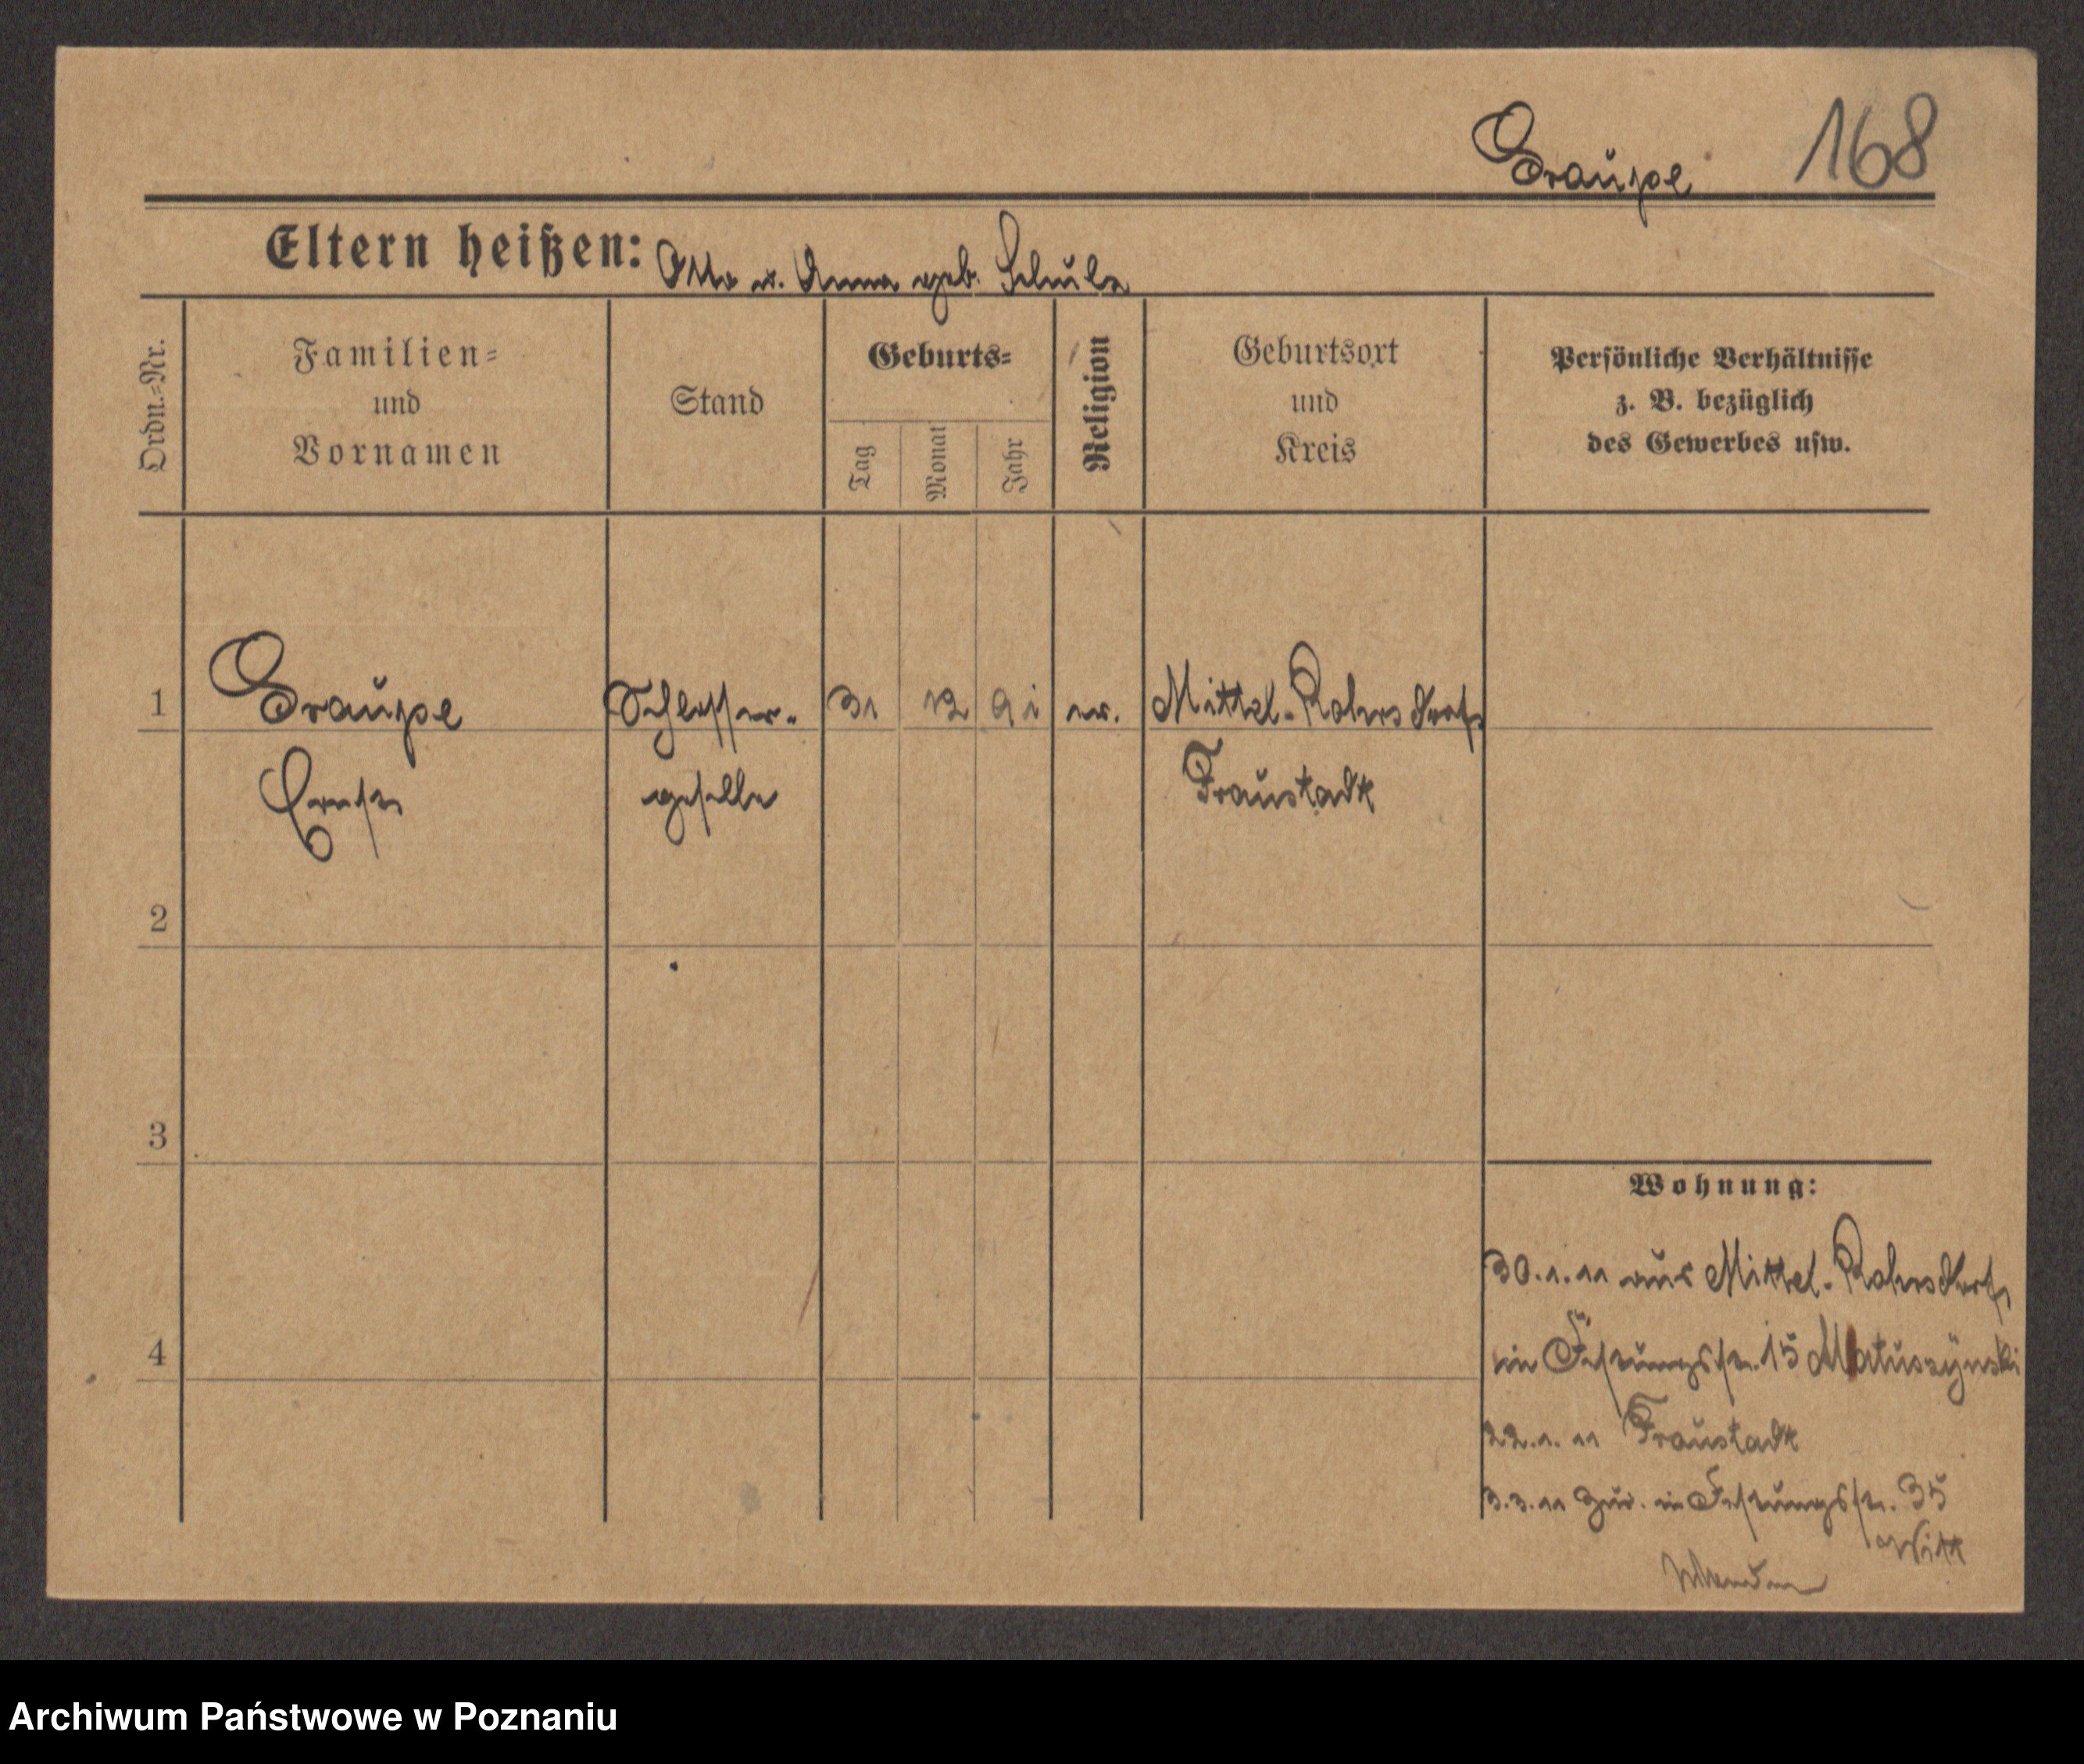 Graupe 168
Eltern heißen: Otto u. Anna geb. Schulz
Ordn.=Nr.
Familien=
und
Vornamen
Stand
Geburts=
Tag
Monat
Jahr
Religion
Geburtsort
und
Kreis
Persönliche Verhältnisse
z. B. bezüglich
des Gewerbes usw.
1 Graupe Schlosser- 31 12 91 ev. Mittel-Rohrsdorf
Ernst geselle Fraustadt
2
3
Wohnung:
30.1.11 aus Mittel-Rohrsdorf
in Festungsstr. 15 Matuszynski
4
22.1.11 Fraustadt
3.3.11 Zur. in Festungsstr. 35
Witt
Archiwum Państwowe w Poznaniu